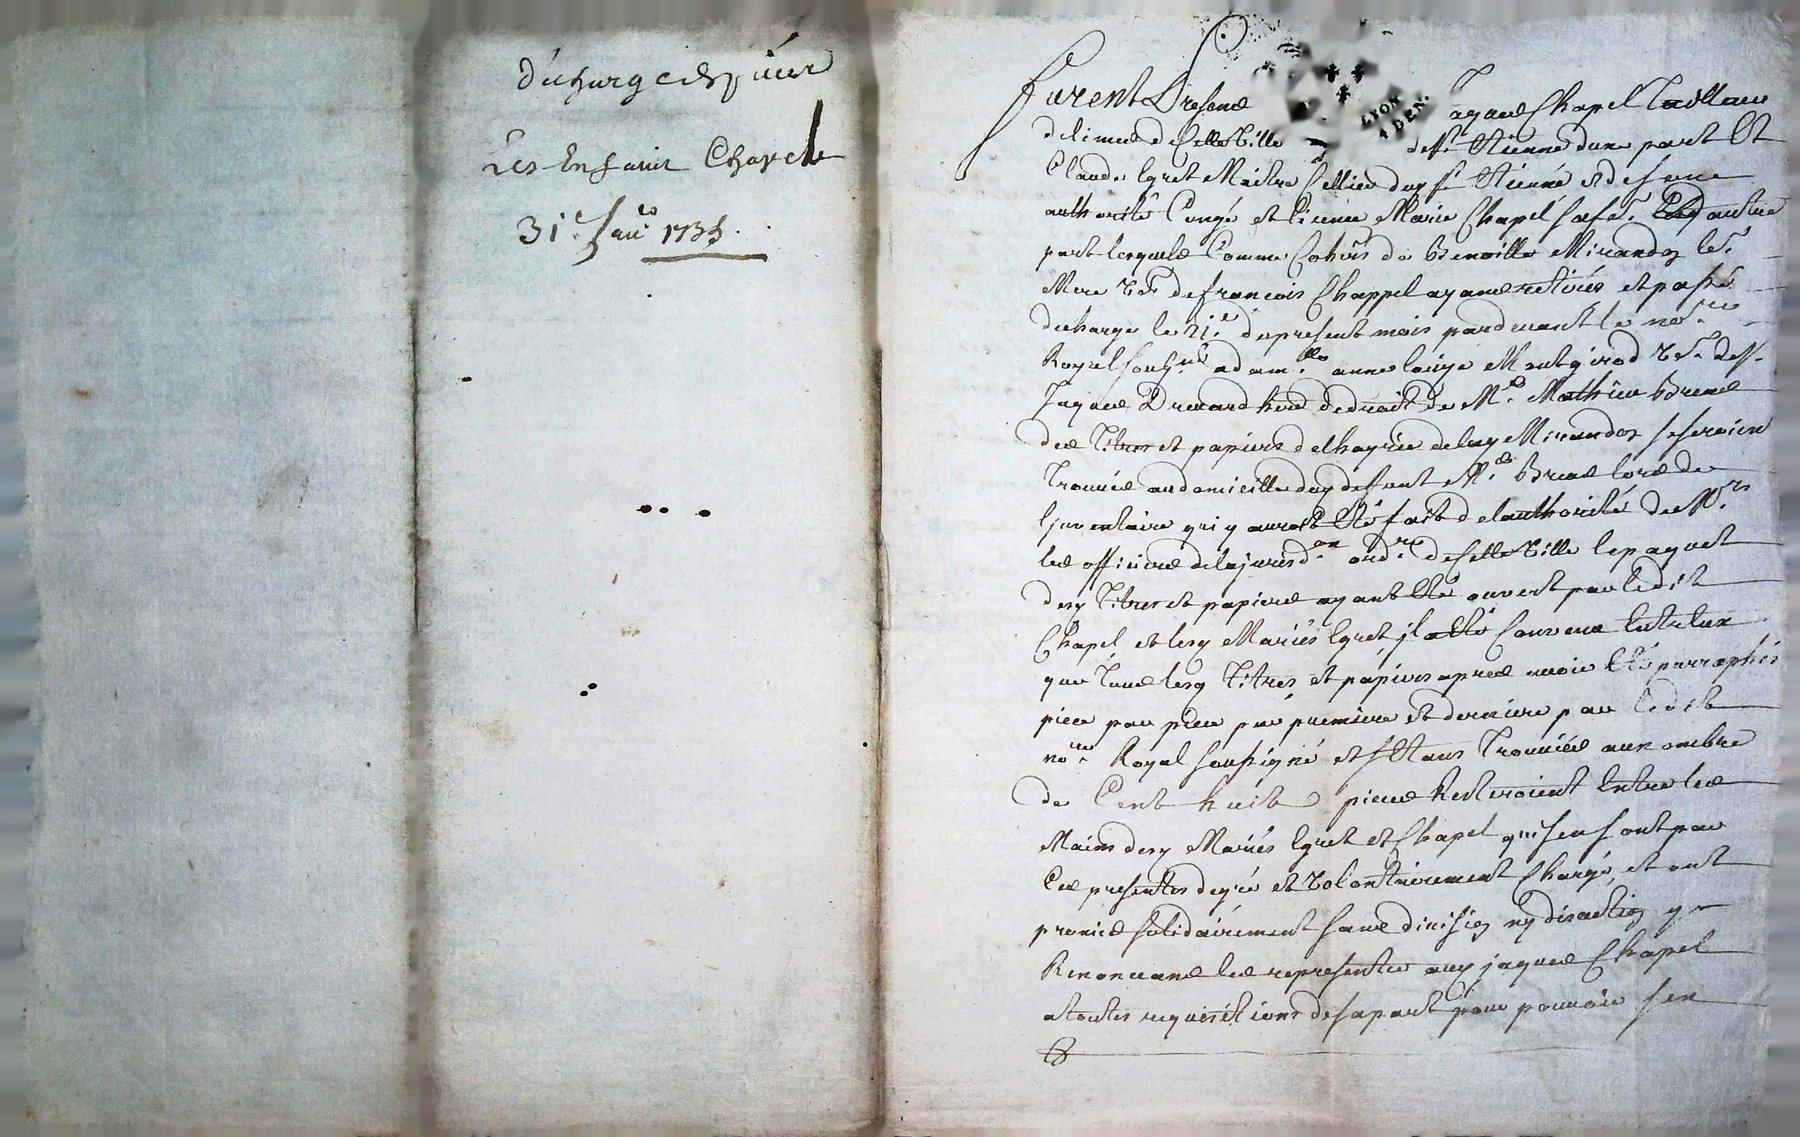 décharge de papiers
Les Enfants Chapel
31e Janr 1735
LYON
4 DEN.
Furent Presens Jaques Chapel Tailleur
de limes de cette Ville de St Etienne dune part Et
Claude Egret Maitre Cellier dud St Etienne et de son
authorité Congé et licence Marie Chapel sa fe. d'autre
part lesquels Comme Cohers de Benoitte Mirandon leur
Mere Vve de francois Chappel ayans retirés et passé
decharge le 21e du present mois pardevant le nore
Royal soussne a damlle anne Montgirod Vve de
Jaques Drevard de droit de Me Mathieu
des Titres et papiers de lhoyrie de lad Mirandon
Trouvés au domicille dud defunt Me lors de
l'inventaire qui y auroit Eté fait de lauthorité de Mrs
les officiers de la jurisdon ordre de cette Ville le paquet
desd Titres et papiers ayant Eté ouvert par ledit
Chapel et lesd Mariés Egret, il a Eté Convenu Entre Eux
que Tous lesd Titres et papiers apres avoir Eté parraphés
piece par piece par premiere et derniere par ledit
nore Royal soussigné et Trouvées au nombre
de Cent huit pieces Resteroient Entre les
Mains desd Mariés Egret et Chapel qui s'en sont par
Ces presentes de gré et Volontairement Chargé, et ont
promis solidairement sans division ny discution y
Renoncans les representer aud jaques Chapel
a toutes requisitions de sa part pour pouvoir s'en